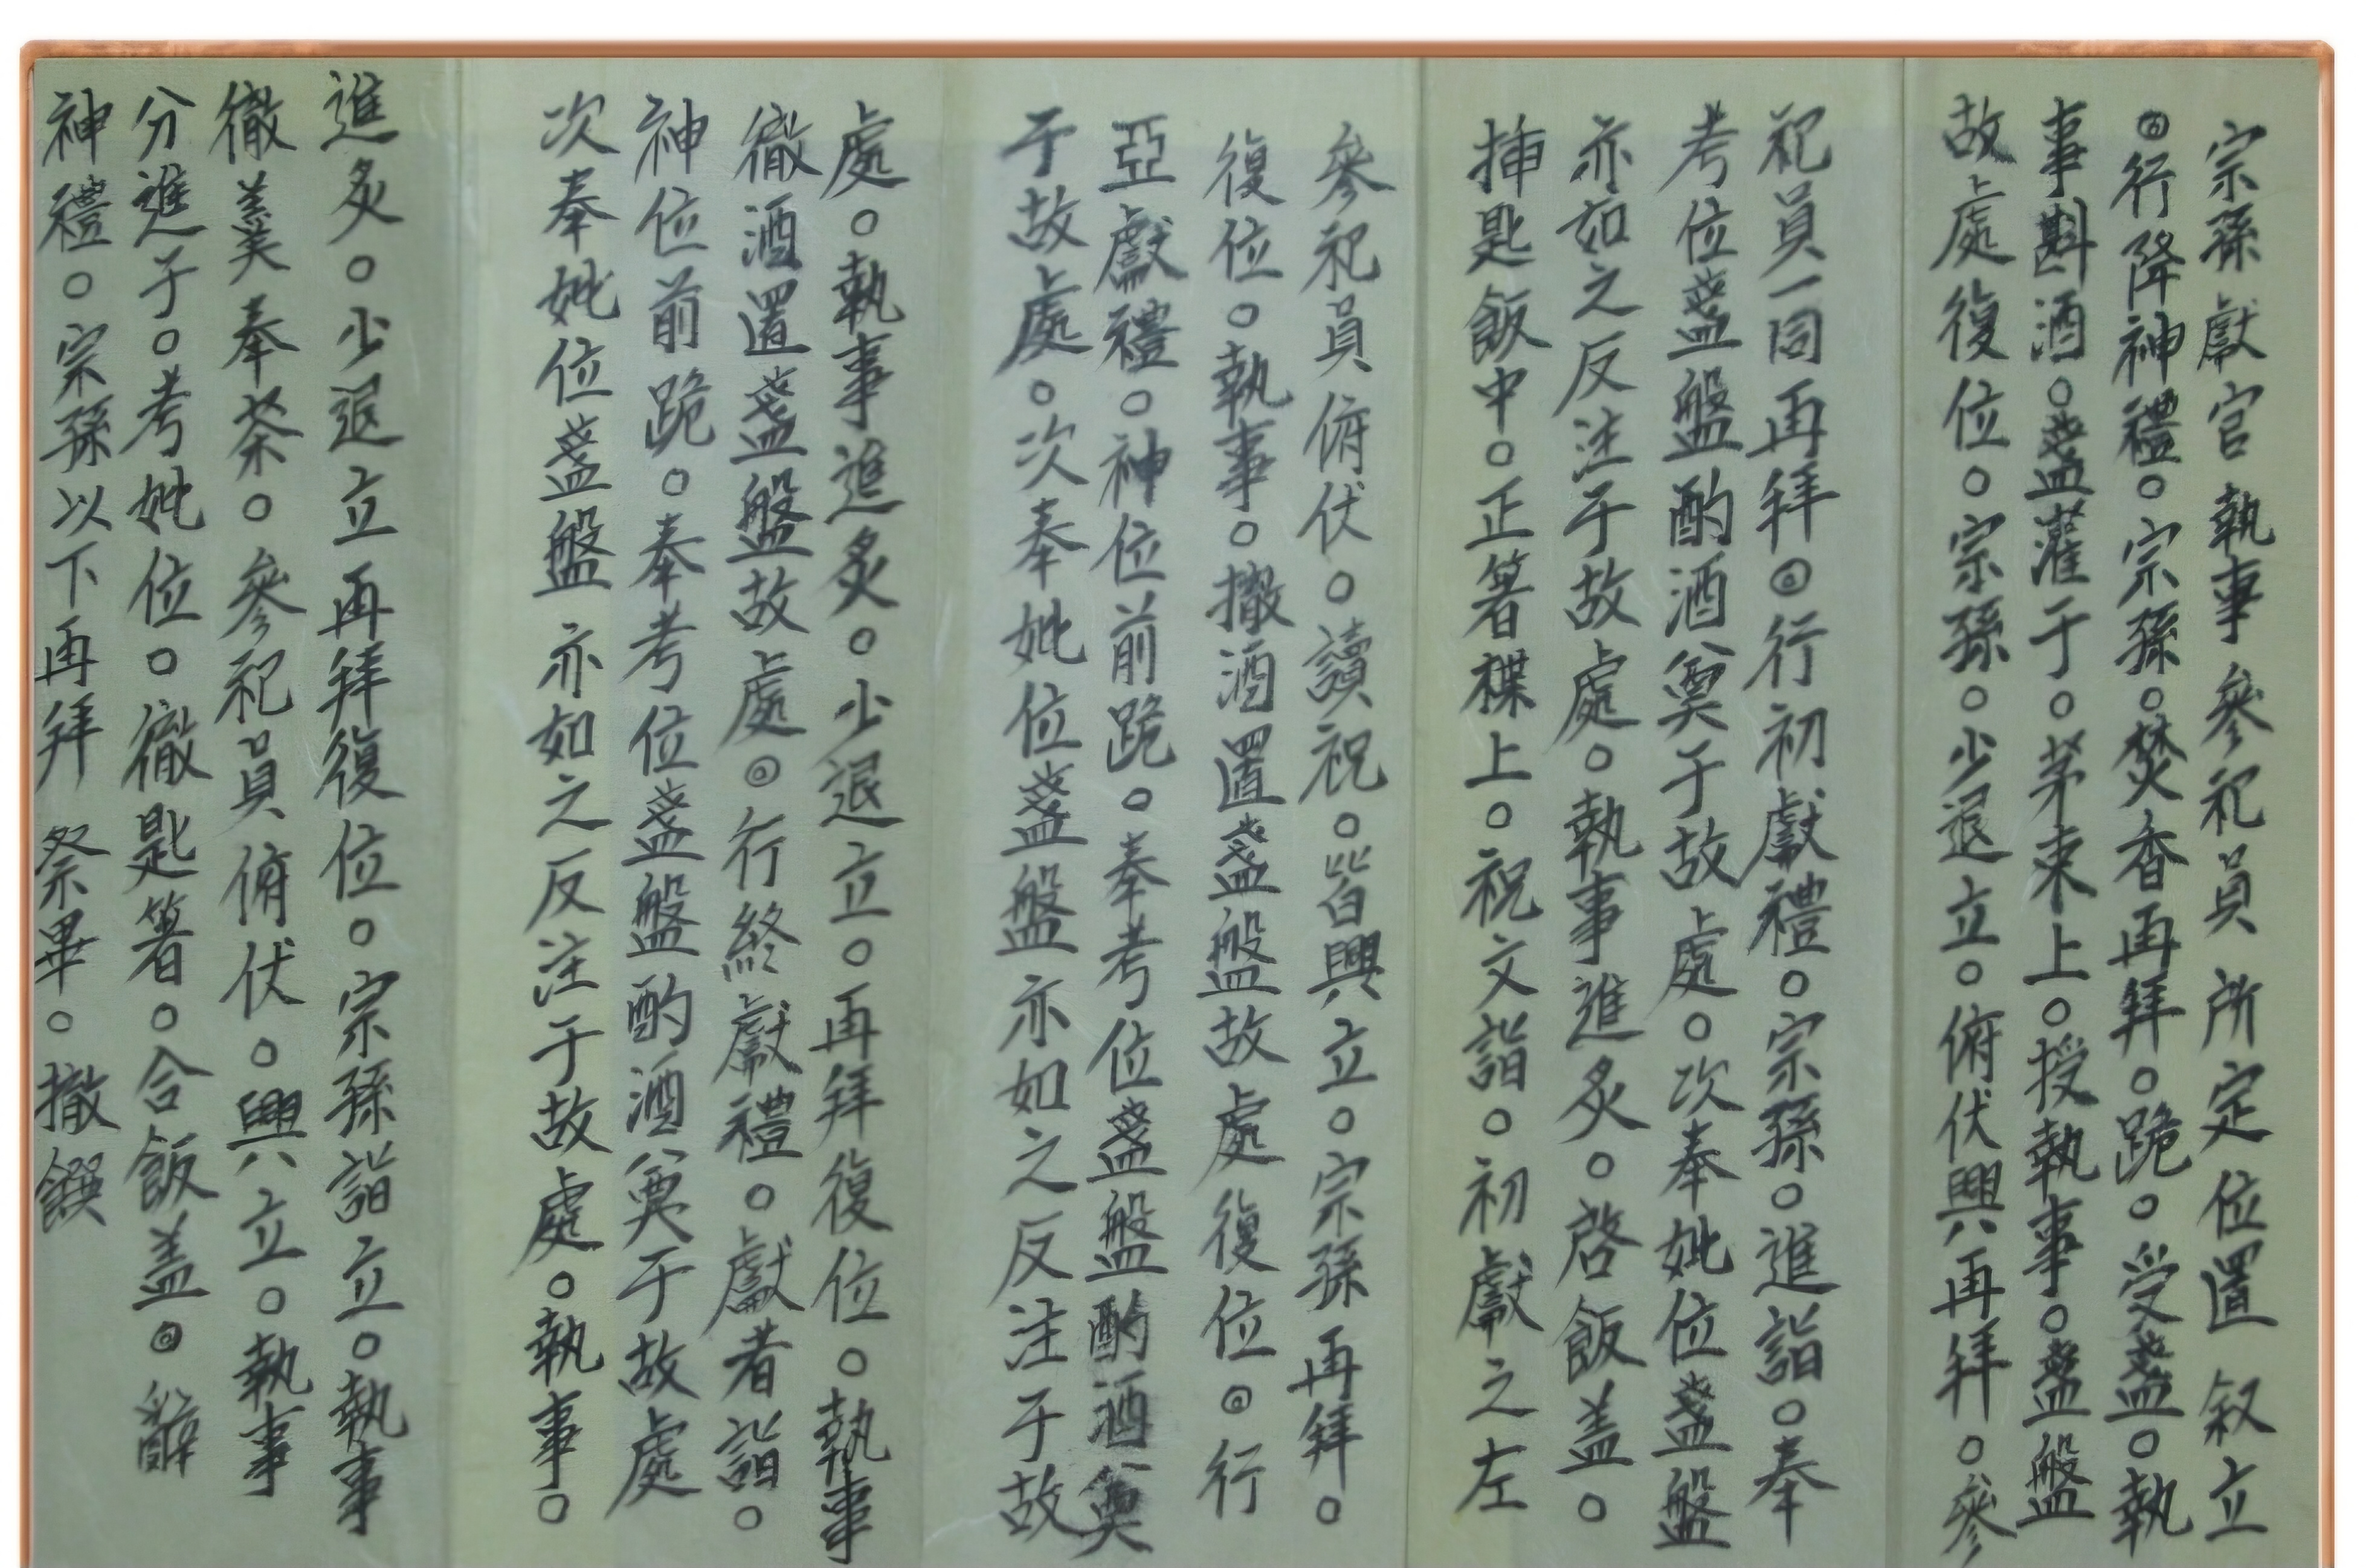 宗孫獻官執事參祀員所定位置叙立
◎行降神禮○宗孫○焚香再拜○跪○受盞○執
事斟酒○盞灌于○茅束上○授執事○盞盤
故處復位○宗孫○少退立○俯伏興再拜○參
祀員一同再拜◎行初獻禮○宗孫○進詣○奉
考位盞盤酌酒奠于故處○次奉妣位盞盤
亦如之反注于故處○執事進炙○啓飯盖○
揷匙飯中○正箸楪上○祝文詣○初獻之左
參祀員俯伏○讀祝○皆興立○宗孫再拜○
復位○執事○撤酒置盞盤故處復位◎行
亞獻禮○神位前跪○奉考位盞盤酌酒奠
于故處○次奉妣位盞盤亦如之反注于故
處○執事進炙○少退立○再拜復位○執事
徹酒置盞盤故處◎行終獻禮○獻者詣○
神位前跪○奉考位盞盤酌酒奠于故處
次奉妣位盞盤亦如之反注于故處○執事○
進炙○少退立再拜復位○宗孫詣立○執事
徹羹奉茶○參祀員俯伏○興立○執事
分進于○考妣位○徹匙箸○合飯盖◎辭
神禮○宗孫以下再拜 祭畢○撤饌